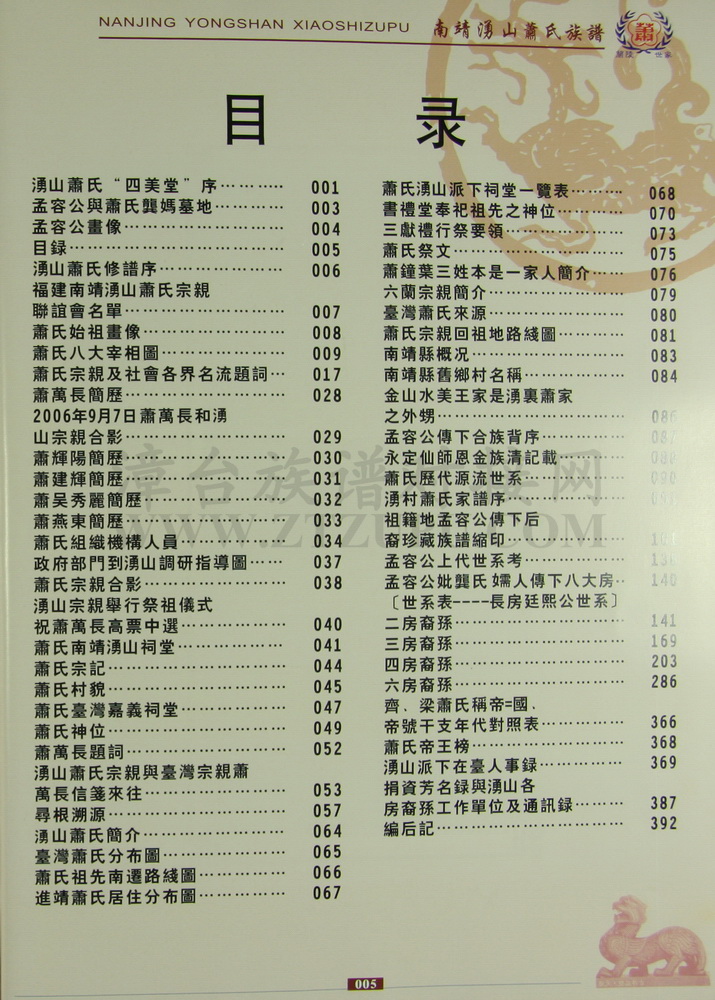 NANJING YONGSHAN XIAOSHIZUPU 南靖湧山蕭氏族譜
蕭
目 录
湧山蕭氏“四美堂”序………… 001
孟容公與蕭氏龔媽墓地………… 003
孟容公畫像……………………… 004
目録……………………………… 005
湧山蕭氏修譜序………………… 006
福建南靖湧山蕭氏宗親
聯誼會名單……………………… 007
蕭氏始祖畫像…………………… 008
蕭氏八大宰相圖………………… 009
蕭氏宗親及社會各界名流題詞… 017
蕭萬長簡歷……………………… 028
2006年9月7日蕭萬長和湧
山宗親合影……………………… 029
蕭輝陽簡歷……………………… 030
蕭建輝簡歷……………………… 031
蕭吴秀麗簡歷…………………… 032
蕭燕東簡歷……………………… 033
蕭氏組織機構人員……………… 034
政府部門到湧山調研指導圖…… 037
蕭氏宗親合影…………………… 038
湧山宗親舉行祭祖儀式
祝蕭萬長高票中選……………… 040
蕭氏南靖湧山祠堂……………… 041
蕭氏宗記………………………… 044
蕭氏村貌………………………… 045
蕭氏臺灣嘉義祠堂……………… 047
蕭氏神位………………………… 049
蕭萬長題詞……………………… 052
湧山蕭氏宗親與臺灣宗親蕭
萬長信箋來往…………………… 053
尋根溯源………………………… 057
湧山蕭氏簡介…………………… 064
臺灣蕭氏分布圖………………… 065
蕭氏祖先南遷路綫圖…………… 066
進靖蕭氏居住分布圖…………… 067
蕭氏湧山派下祠堂一覽表……… 068
書禮堂奉祀祖先之神位………… 070
三獻禮行祭要領………………… 073
蕭氏祭文………………………… 075
蕭鐘葉三姓本是一家人簡介…… 076
六蘭宗親簡介…………………… 079
臺灣蕭氏來源…………………… 080
蕭氏宗親回祖地路綫圖………… 081
南靖縣概况……………………… 083
南靖縣舊鄉村名稱……………… 084
金山水美王家是湧裏蕭家
之外甥…………………………… 086
孟容公傳下合族背序……………
永定仙師恩金族清記載…………
蕭氏歷代源流世系……………… 090
湧村蕭氏家譜序…………………
祖籍地孟容公傳下后
裔珍藏族譜縮印…………………
孟容公上代世系考………………
孟容公妣龔氏孺人傳下八大房… 140
〔世系表----長房廷熙公世系〕
二房裔孫………………………… 141
三房裔孫………………………… 169
四房裔孫………………………… 203
六房裔孫………………………… 286
齊、梁蕭氏稱帝=國、
帝號干支年代對照表…………… 366
蕭氏帝王榜……………………… 368
湧山派下在臺人事録…………… 369
捐資芳名録與湧山各
房裔孫工作單位及通訊録……… 387
編后記…………………………… 392
005